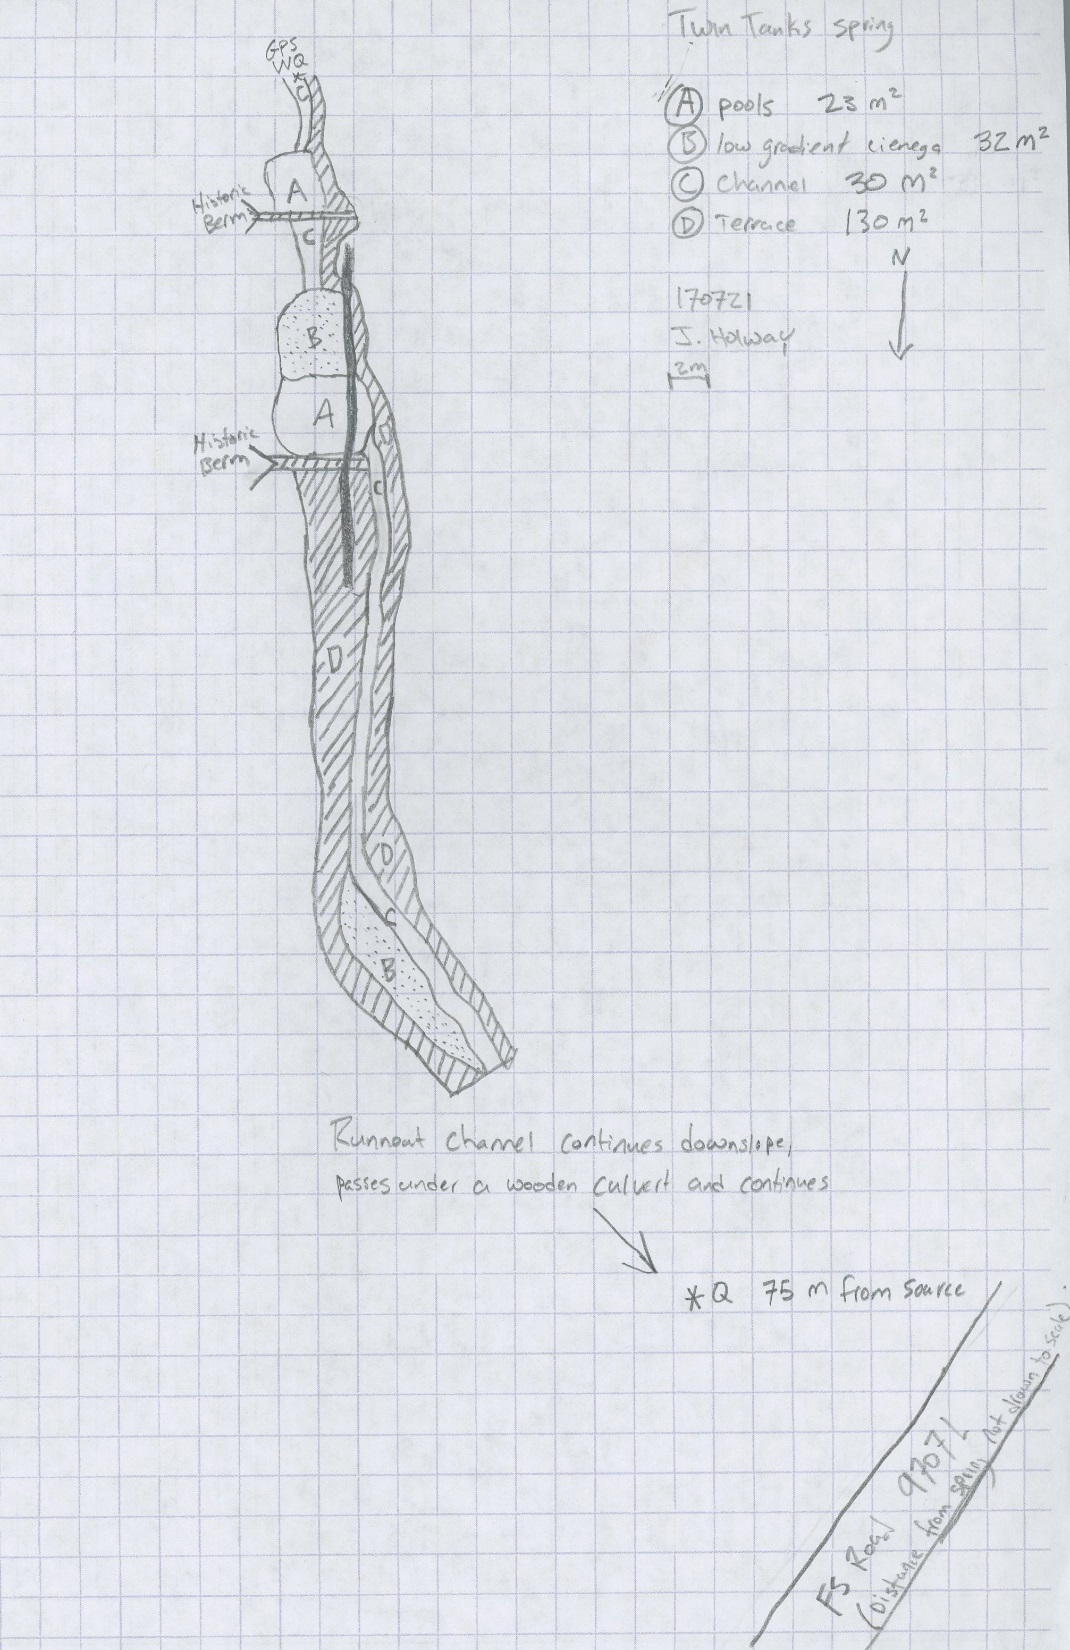 Twin Tanks spring
A pools 23 m²
B low gradient cienega 32 m²
C Channel 30 m²
D Terrace 130 m²
N
170721
J. Holway
2m
GPS
WQ
*
C
A
Historic
Berm
C
B
A
D
Historic
Berm
C
D
D
C
B
Runnout channel continues downslope,
passes under a wooden culvert and continues
* Q 75 m from source
FS Road 9707L
(Distance from spring not drawn to scale)